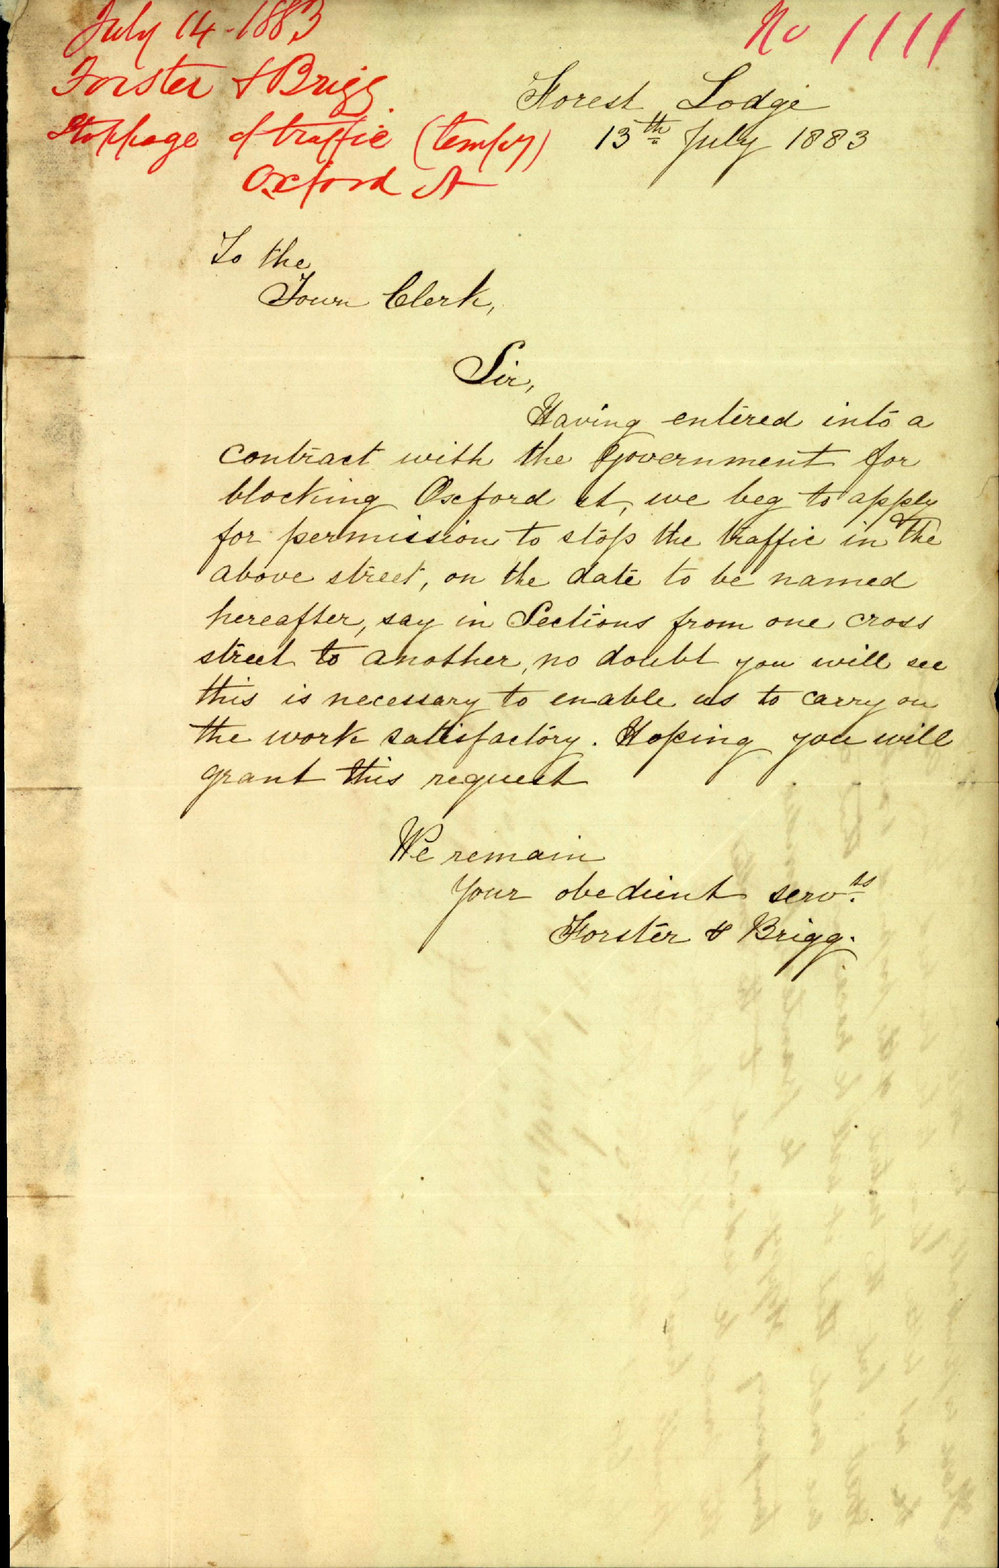 July 14-1883
No 1111
Forster & Brigg
Stoppage of traffic (tempy)
Oxford St
Forest Lodge
13th July 1883
To the
Town Clerk,
Sir,
Having entered into a
contract with the Government for
blocking Oxford st, we beg to apply
for permission to stop the traffic in the
above street, on the date to be named
hereafter, say in Sections from one cross
street to another, no doubt you will see
this is necessary to enable us to carry on
the work satisfactory. Hoping you will
grant this request
We remain
Your obedient servts
Forster & Brigg.